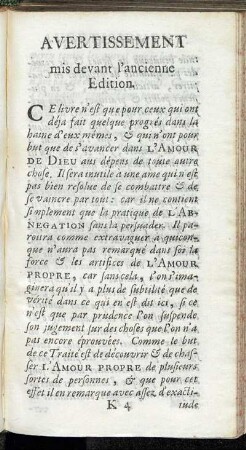 AVERTISSEMENT
mis devant l'ancienne
Edition.
CE livre n'est que pour ceux qui ont
déja fait quelque progrés dans la
haine d'eux mêmes, & qui n'ont pour
but que de s'avancer dans L'AMOUR
DE DIEU aus dépens de toute autre
chose. Il sera inutile a une ame qui n'est
pas bien resolue de se combatre & de
se vaincre par tout: car il ne contient
simplement que la pratique de L'AB-
NEGATION sans la persuader. Il pa-
roitra comme extravaguer a quicon-
que n'aura pas remarqué dans soi la
force & les artifices de L'AMOUR
PROPRE, car sans cela, l'on s'ima-
ginera qu'il y a plus de subtilité que de
vérité dans ce qui en est dit ici, si ce
n'est que par prudence l'on suspende
son jugement sur des choses que l'on n'a
pas encore éprouvées. Comme le but
de ce Traité est de découvrir & de chas-
ser L'AMOUR PROPRE de plusieurs
sortes de personnes, & que pour cet
effet il en remarque avec assez d'exacti-
K 4 tude